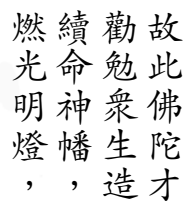 故此佛陀才
勸勉眾生造
續命神幡，
燃光明燈，